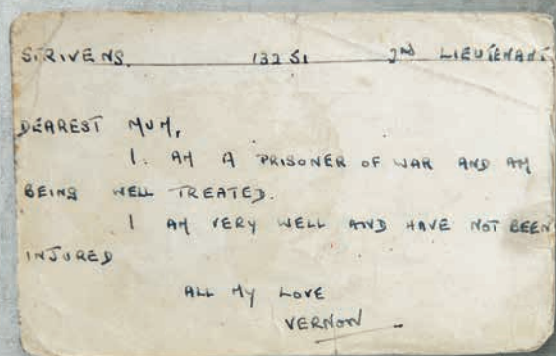 STRIVENS. 13251 2ND LIEUTENANT
DEAREST MUM,
I. AM A PRISONER OF WAR AND AM
BEING WELL TREATED.
I AM VERY WELL AND HAVE NOT BEEN
INJURED
ALL MY LOVE
VERNON